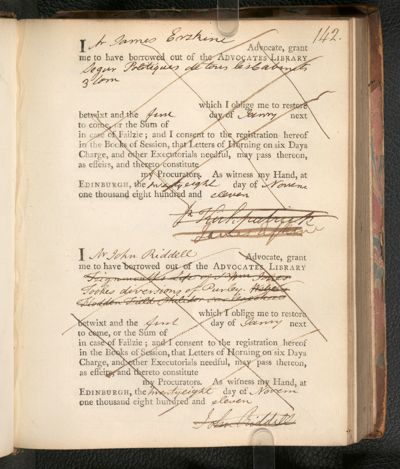 142.
I Mr James Erskine Advocate, grant
me to have borrowed out of the ADVOCATES LIBRARY
Segur Politiques de tous les Cabinets
3 tom
which I oblige me to restore
betwixt and the first day of Janry next
to come, or the Sum of
in case of Failzie; and I consent to the registration hereof
in the Books of Session, that Letters of Horning on six Days
Charge, and other Executorials needful, may pass thereon,
as effeirs, and thereto constitute
my Procurators. As witness my Hand, at
EDINBURGH, the twentyeight day of Novem
one thousand eight hundred and eleven
Kirkpatrick
I Mr John Riddell Advocate, grant
me to have borrowed out of the ADVOCATES LIBRARY
Tookes diversions of Purley
which I oblige me to restore
betwixt and the first day of Janry next
to come, or the Sum of
in case of Failzie; and I consent to the registration hereof
in the Books of Session, that Letters of Horning on six Days
Charge, and other Executorials needful, may pass thereon,
as effeirs, and thereto constitute
my Procurators. As witness my Hand, at
EDINBURGH, the twentyeight day of Novem
one thousand eight hundred and eleven
John Riddell